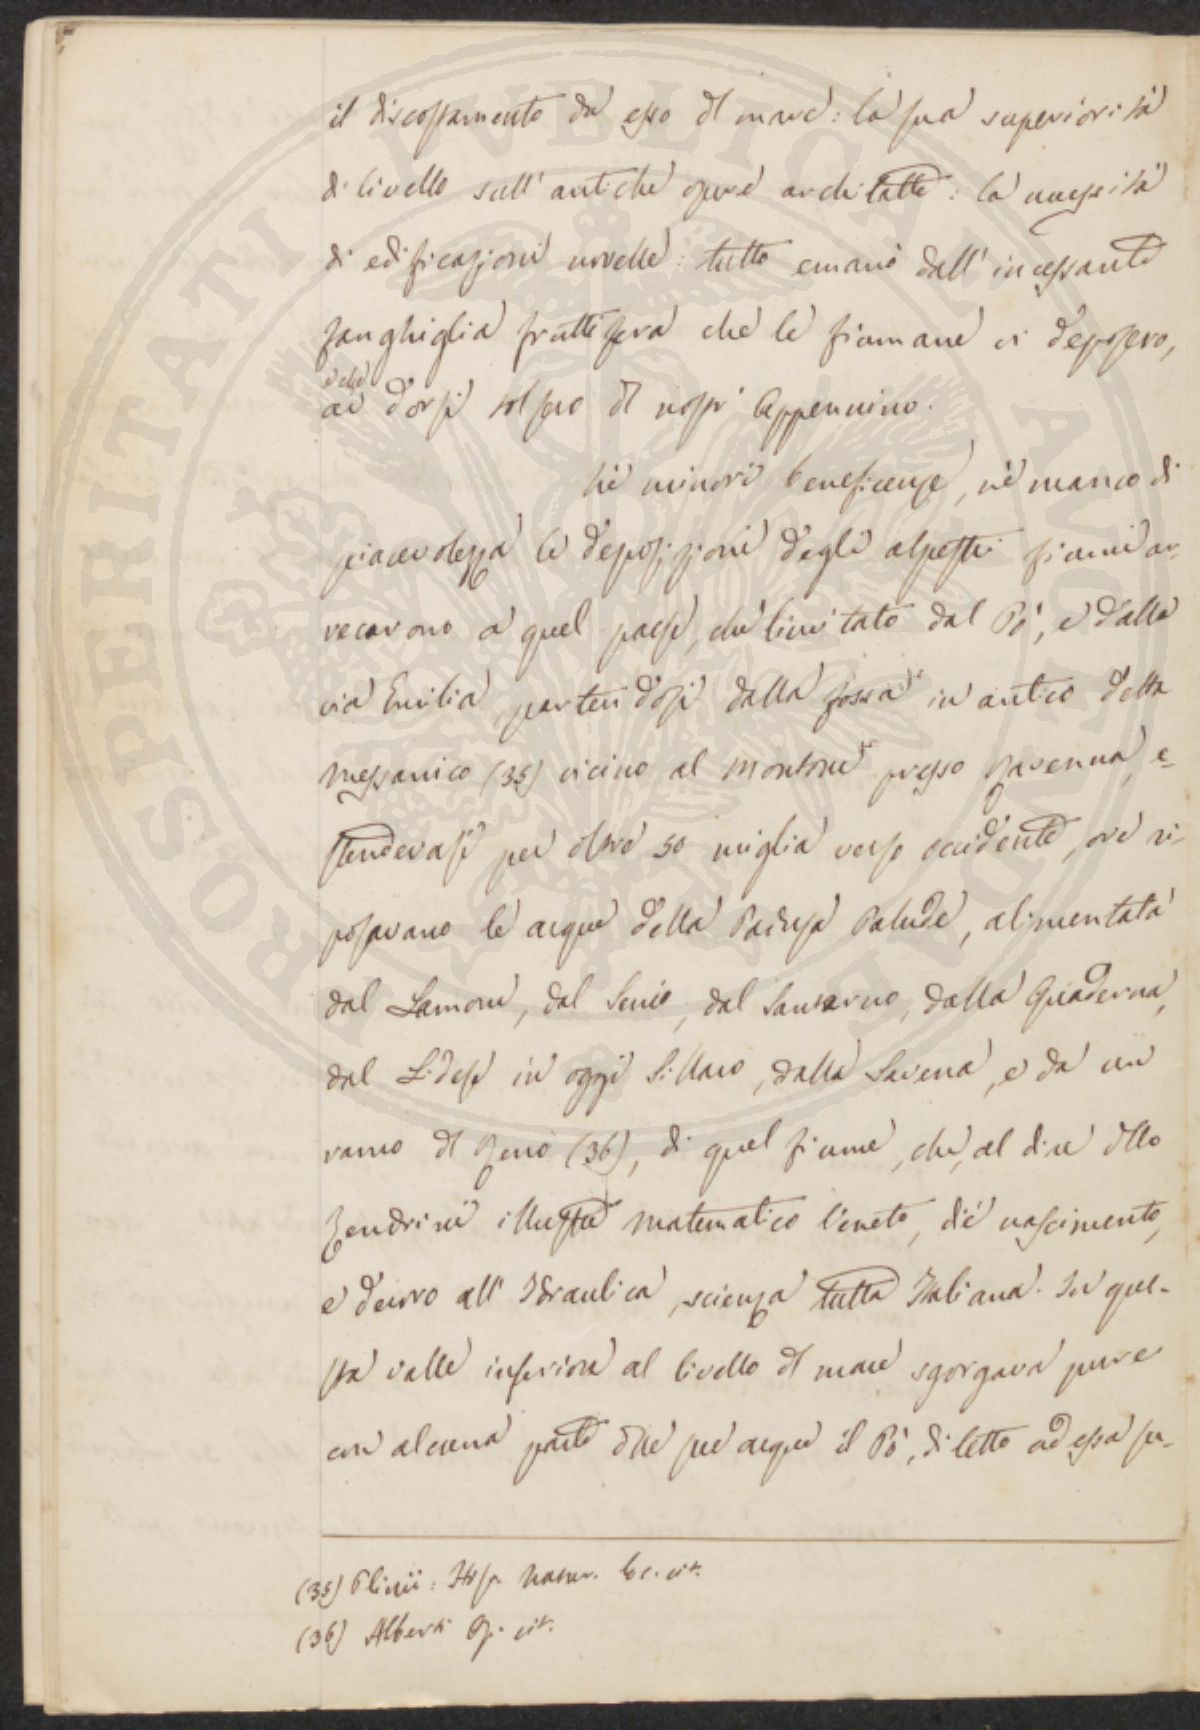 PROSPERITATI PVBLICAE AVGENDAE
il discostamento da esso del mare: la sua superiorità
di livello sull' antiche opere architettate: la necessità
di edificazioni novelle: tutto emanò dall' incessante
fanghiglia fruttifera che le fiumane vi deposero,
e che
ai dorsi tolsero del nostro Appennino.
Nè minori beneficenze, nè manco di
piacevolezza le deposizioni degli alpestri fiumi ar-
recarono a quel paese, che limitato dal Pò, e dalla
via Emilia, partendosi dalla fossa in antico detta
Messanico (35) vicino al Montone presso Ravenna, e-
stendevasi per oltre 50 miglia verso occidente, ove ri-
posavano le acque della Padusa Palude, alimentata
dal Lamone, dal Senio, dal Santerno, dalla Quaderna,
dal Sidese in oggi Sillaro, dalla Savena, e da un
ramo del Reno (36), di quel fiume, che, al dire dello
Zendrini illustre matematico Veneto, diè nascimento,
e decoro all' Idraulica, scienza tutta Italiana. In que-
sta valle inferiore al livello del mare sgorgava pure
con alcuna parte delle sue acque il Pò, di letto ad essa su-
(35) Plinii: Hist. Natur. loc. cit.
(36) Alberti Op. cit.